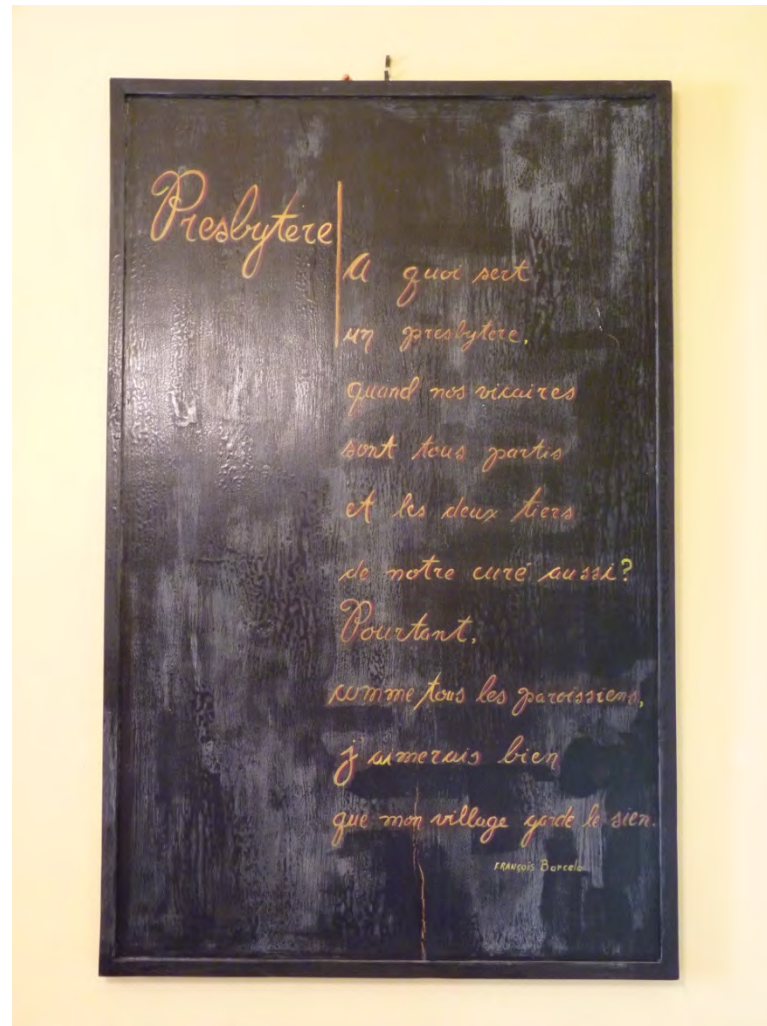 Presbytère
A quoi sert
un presbytère,
quand nos vicaires
sont tous partis
et les deux tiers
de notre curé aussi?
Pourtant,
comme tous les paroissiens,
j'aimerais bien
que mon village garde le sien.
FRANÇOIS Barcelo